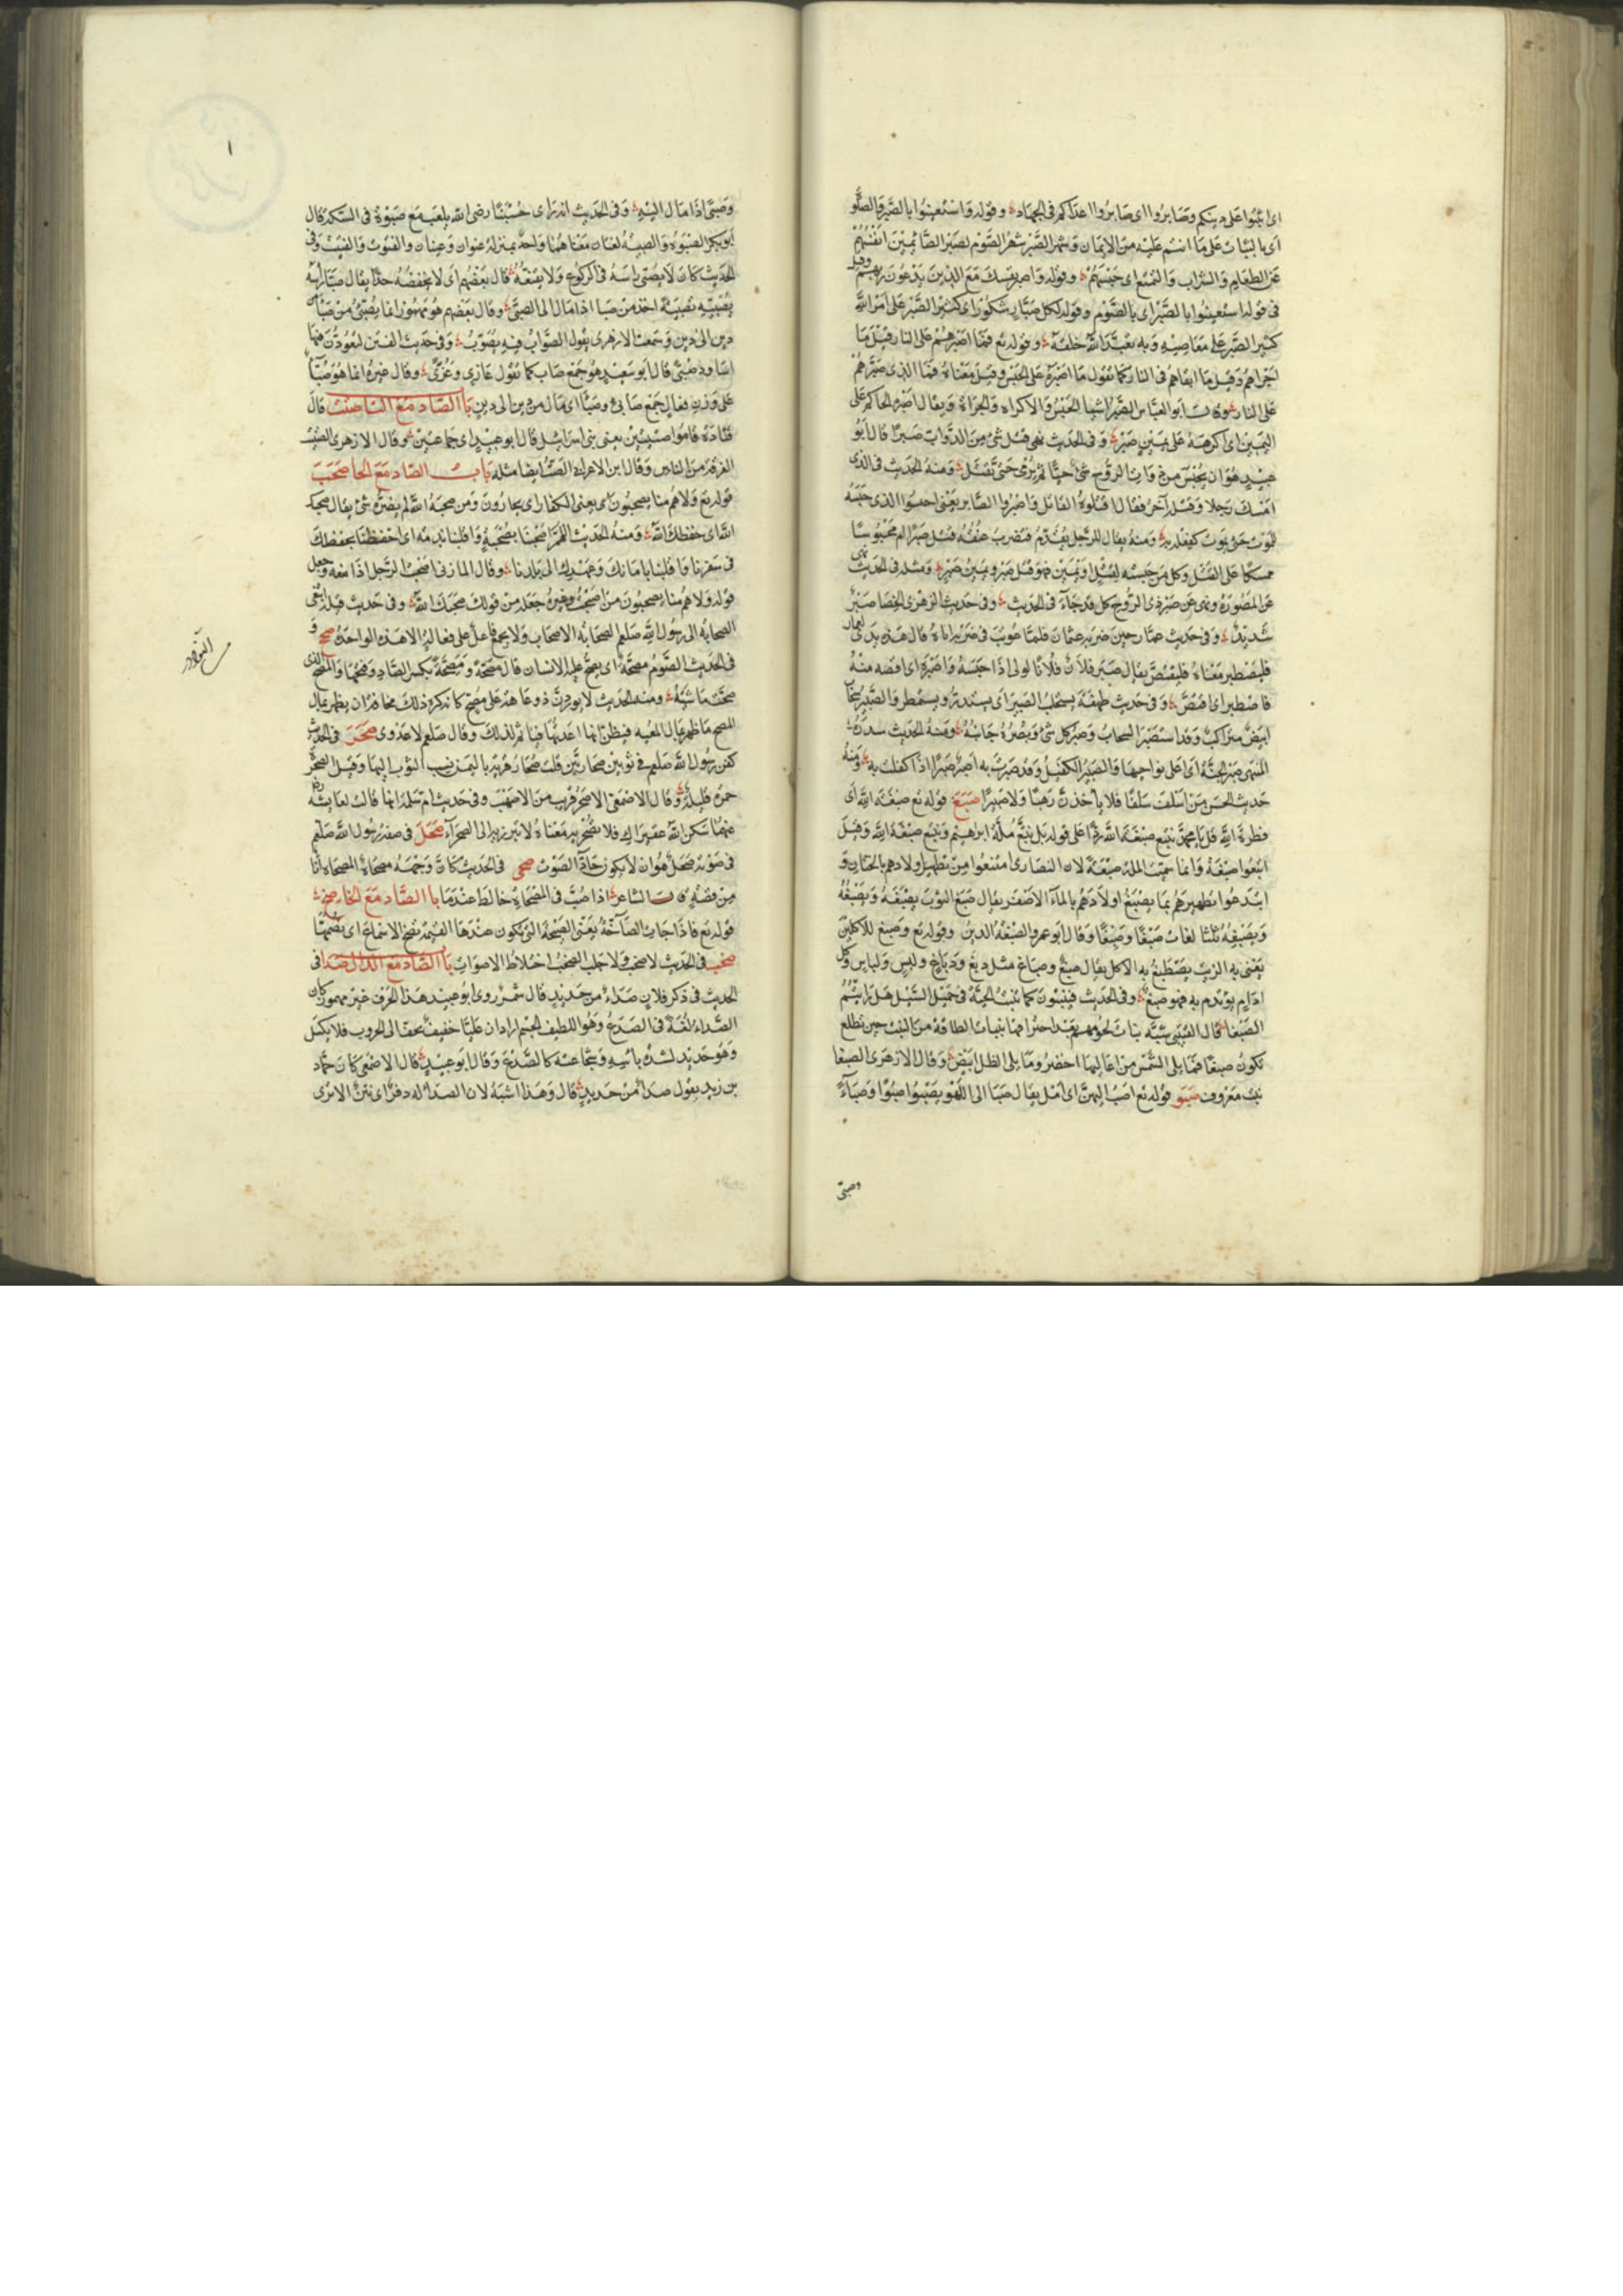 اى اثبتوا على دينكم وصابروا اى صابروا اعداكم فى الجهاد وقوله واستعينوا بالصبر والصلو
اى بالثبات على ما انتم عليه من الايمان وشهر الصبر شهر الصوم لصبر الصائمين انفسهم
عن الطعام والشراب والتمتع اى حبسهم وقوله واصبر نفسك مع الذين يدعون ربهم وقيل
فى قوله استعينوا بالصبر اى بالصوم وقوله لكل صبار شكور اى كثير الصبر على امر الله
كثير الصبر على معاصيه وبه تعبد الله خلقه وقوله تع فما اصبرهم على النار قيل ما
اجراهم وقيل ما ابقاهم فى النار كما تقول ما اصبره على الحبس وقيل معناه فما الذى صبرهم
على النار وقال ابو العباس الصبر اشيا الحبس والاكراه والجراة ويقال اصبر الحاكم على
اليمين اى اكرهه على يمين صبر وفى الحديث نهى قتل شئ من الدواب صبرا قال ابو
عبيد هو ان يحبس من ذوات الروح شئ حيا ثم يرمى حتى يقتل ومنه الحديث فى الذى
امسك رجلا وقتله آخر فقال اقتلوا القاتل واصبروا الصابر يعنى احبسوا الذى حبسه
للموت حتى يموت كفعله به ومنه يقال للرجل يقدم فتضرب عنقه قتل صبرا اى محبوسا
ممسكا على القتل وكل من حبسته لقتل او يمين فهو قتل صبر ويمين صبر ومثله فى الحديث نهى
عن المصبورة ونهى عن صبر ذى الروح كل قد جاء فى الحديث وفى حديث الزهرى الخصا صبر
شديد وفى حديث عمار حين ضربه عثمان فلما عوتب فى ضربه اياه قال هذه يدى لعمار
فليصطبر معناه فليقتص يقال صبر فلان فلانا لولى اذا حبسه واصبره اى اقصه منه
فاصطبر اى اقتص وفى حديث طهفة يستحلب الصبير اى يستدرة ويستمطر والصبير سحاب
ابيض متراكب وقد استصبر السحاب وصبر كل شئ وبصره جانبه ومنه الحديث سدرة
المنتهى صبر الجنة اى اعلى نواحيها والصبير الكفيل وقد صبرت به اصبر صبرا اذا كفلت به ومنه
حديث الحسن من اسلف سلفا فلا ياخذن رهنا ولا صبيرا صبغ قوله تع صبغة الله اى
فطرة الله قل يا محمد نتبع صبغة الله ردا على قوله بل نتبع ملة ابرهيم ونتبع صبغة الله وقيل
اتبعوا صبغة وانما سميت الملة صبغة لان النصارى امتنعوا من تطهير اولادهم بالختان و
ابتدعوا تطهيرهم بما يصبغ اولادهم بالماء الاصفر يقال صبغ الثوب يصبغه ويصبغه
ويصبغه ثلث لغات صبغا وصبغا وقال ابو عمرو الصبغة الدين وقوله تع وصبغ للاكلين
يعنى به الزيت يصطبغ به الاكل يقال صبغ وصباغ مثل دبغ ودباغ ولبس ولباس وكل
ادام يؤتدم به فهو صبغ وفى الحديث فينبتون كما تنبت الحبة فى حميل السيل هل رايتم
الصبغا قال القتيبى شبه نبات لحومهم بعد احتراقها بنبات الطاقة من النبت حين تطلع
تكون صبغا فما يلى الشمس من اعاليها اخضر وما يلى الظل ابيض وقال الازهرى الصبغا
نبت معروف صبو قوله تع اصب اليهن اى امل يقال صبا الى اللهو يصبوا صبوا وصباء
وصبى
وصبى اذا مال اليه وفى الحديث انه راى حسينا رضى الله يلعب مع صبوة فى السكة قال
ابو بكر الصبوة والصبية لغتان معناهما واحد بمنزلة عنوان وعنيان والقنوت والقنيت وفى
الحديث كان لا يصبى راسه فى الركوع ولا يقنعه قال بعضهم اى لا يخفضه جدا يقال صبا راسه
يصبيه تصبية اخذ من صبا اذا مال الى الصبى وقال بعضهم هو مهموز انما يصبئ من صبا
دين الى دين وسمعت الازهرى يقول الصواب فيه يصوب وفى حديث الفتن لتعودن فيها
اساود صبى قال ابو سعيد هو جمع صاب كما تقول غازى وغزى وقال غيره انما هو صباء
على وزن فعال جمع صابئ وصبا اى مال من دين الى دين با الصاد مع التا صتت قال
قتادة قاموا صتيتين يعنى بنى اسرائيل قال ابو عبيد اى جماعتين وقال الازهرى الصت
الفرقة من الناس وقال ابن الاعرابى الصت ايضا مثله باب الصاد مع الحا صحب
قوله تع ولا هم منا يصحبون اى يعنى الكفار اى يجارون ومن صحبه الله لم يضره شئ يقال صحبك
الله اى حفظك الله ومنه الحديث اللهم اصحبنا بصحبة واقلبنا بذمة اى احفظنا بحفظك
فى سفرنا واقلبنا بامانك وعهدك الى بلدنا وقال المازنى اصحبت الرجل اذا منعه وجعل
قوله ولا هم منا يصحبون من اصحبت وغيره جعله من قولك صحبك الله وفى حديث قيلة ابتغى
الصحابة الى رسول الله صلعم الصحابة الاصحاب ولا يجمع فاعل على فعالة الا هذه الواحدة صح و
فى الحديث الصوم مصحة اى يصح عليه الانسان قال مصحة ومصحة بكسر الصاد وفتحها والمصح الذى
صحت ماشيته ومنه الحديث لا يوردن ذو عاهة على مصح كانه كره ذلك مخافة ان يظهر بمال
المصح ما ظهر بمال المعيه فيظن انها اعدتها فياثم لذلك وقال صلعم لا عدوى صحر فى الحديث
كفن رسول الله صلعم فى ثوبين صحاريين قلت صحار قرية باليمن نسب الثوب اليها وقيل الصحرة
حمرة قليلة وقال الاصمعى الاصحر قريب من الاصهب وفى حديث ام سلمة انها قالت لعائشة رضى
عنهما سكن الله عقيراك فلا تصحريه معناه لا تبرزيه الى الصحراء صحل فى صفة رسول الله صلعم
فى صوته صحل هو ان لا يكون حادّ الصوت صحى فى الحديث كان وجهه مصحاة المصحاة انا
من فضة قال الشاعر اذا صب فى المصحاة خالط عندما با الصاد مع الخا صخ
قوله تع فاذا جات الصاخة يعنى الصيحة التى تكون عندها القيمة تصخ الاسماع اى تصمها
صخب فى الحديث لا صخب ولا جلب الصخب اختلاط الاصوات با الصاد مع الدال صدا فى
الحديث فى ذكر فلان صداء من حديد قال شمر روى ابو عبيد هذا الحرف غير مهموز كان
الصداء لغة فى الصدع وهو اللطيف الجسم اراد ان عليا خفيف يخف الى الحروب فلا يكسل
وهو حديد لشدة باسه وشجاعته كالصدع وقال ابو عبيد قال الاصمعى كان حماد
بن زيد يقول صدا من حديد قال وهذا اشبه لان الصدا له دفر اى نتن الا ترى
١